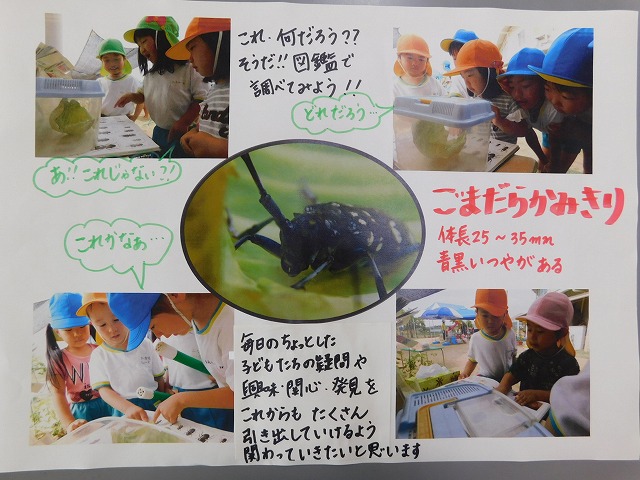 これ、何だろう??
そうだ!!図鑑で
調べてみよう!!
どれだろう…
あ!!これじゃない?!
これかなあ…
ごまだらかみきり
体長25～35mm
青黒いつやがある
毎日のちょっとした
子どもたちの疑問や
興味・関心・発見を
これからも たくさん
引き出していけるよう
関わっていきたいと思います